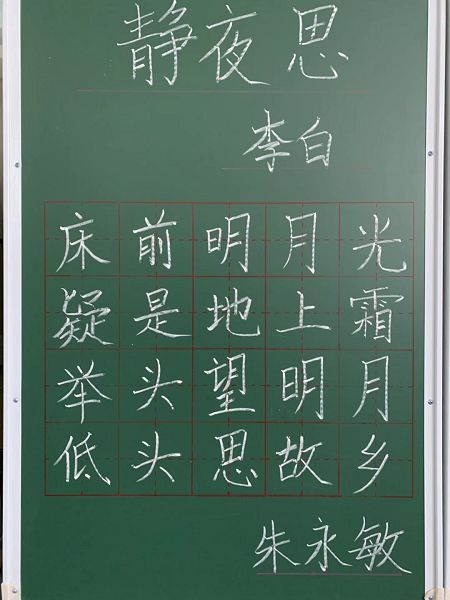 静夜思
李白
床前明月光
疑是地上霜
举头望明月
低头思故乡
朱永敏